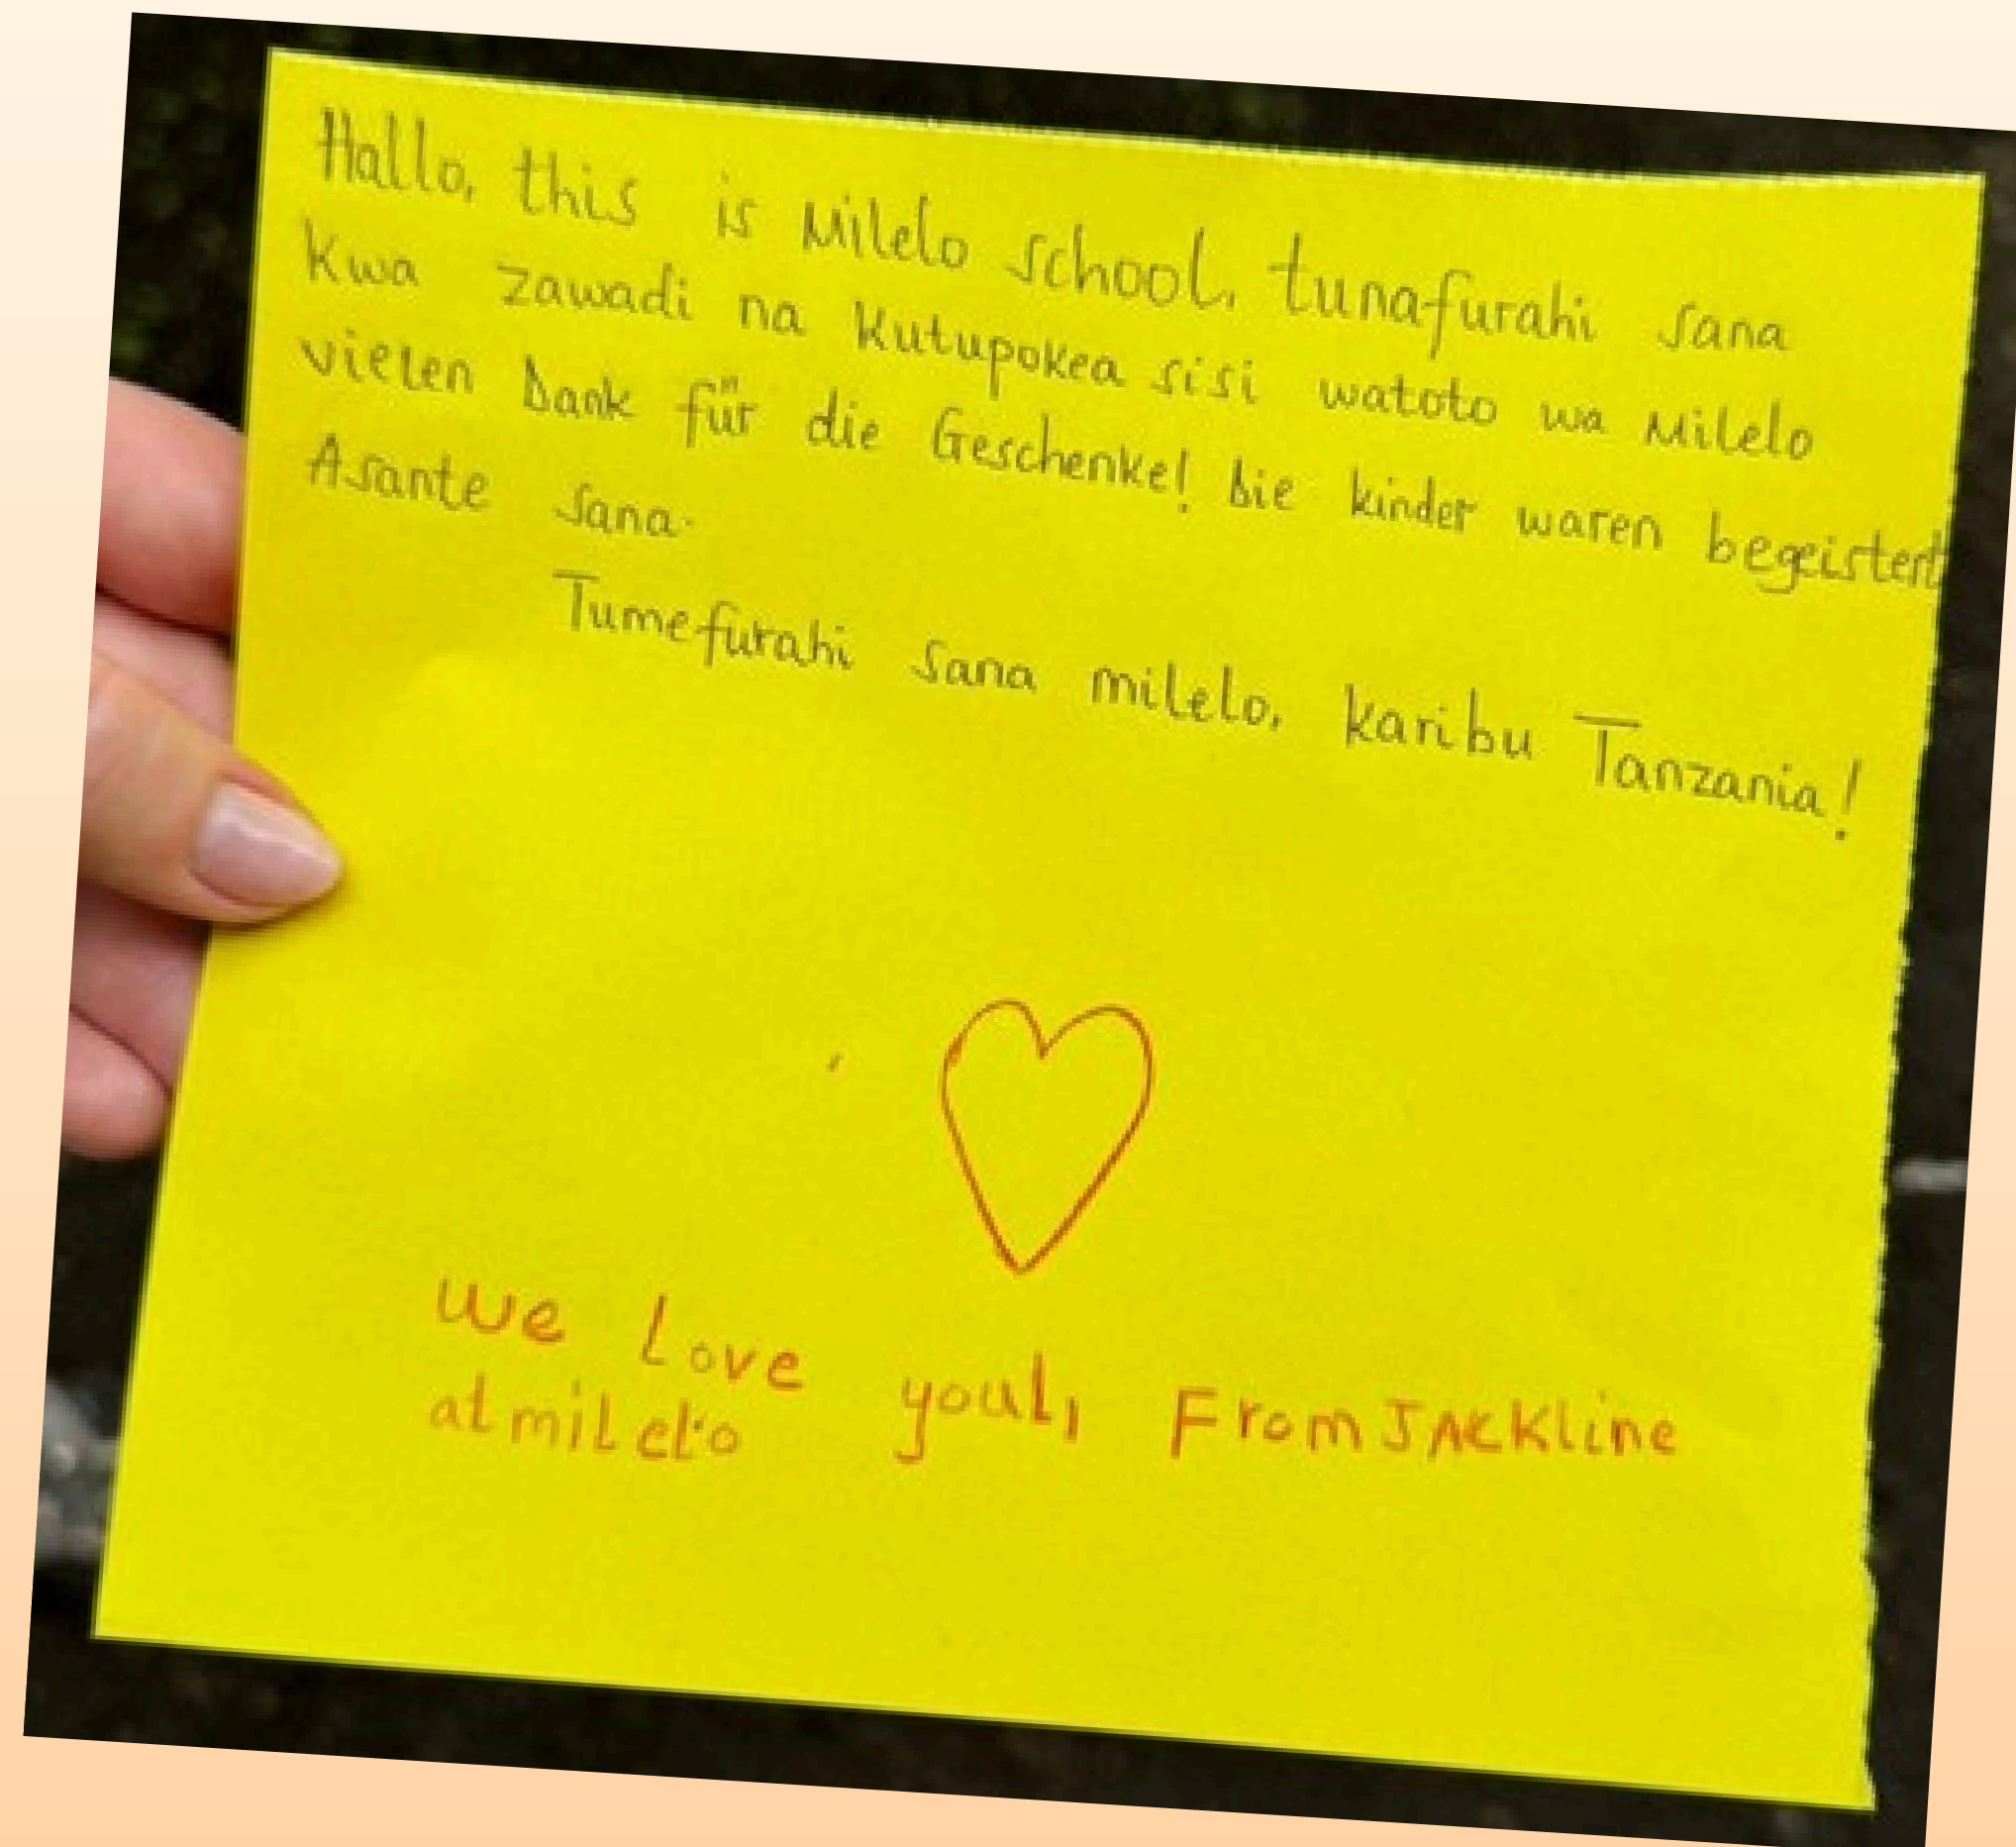 Hallo, this is Milelo school, tunafurahi sana
Kwa zawadi na Kutupokea sisi watoto wa Milelo
vielen Dank für die Geschenke! Die kinder waren begeistert
Asante sana.
Tumefurahi sana milelo, karibu Tanzania!
We Love youl, From JACKline
at milelo